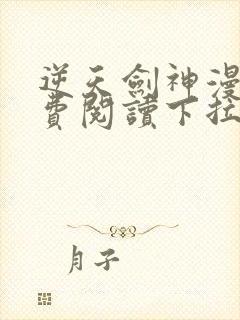 逆天劍神漫
費閱讀下拉
月子